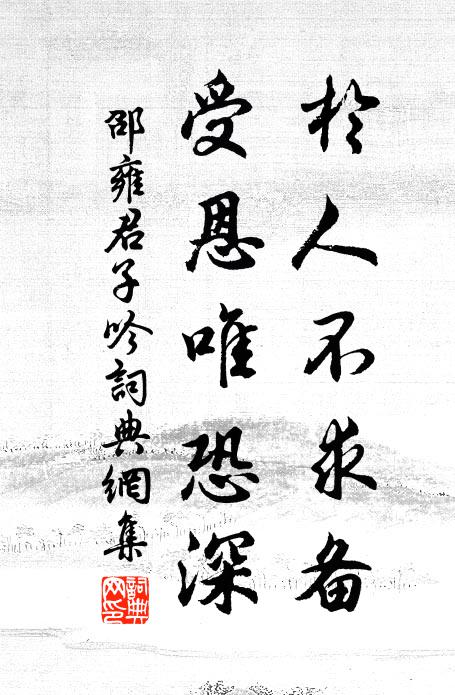 於人不求备
受恩唯恐深
邵雍君子吟詞典網集
詞典
网印